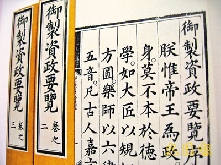 御製資政要覽
朕惟帝王為政
身莫不本於德
學如大匠以規
方圓樂師以六
五音凡古人嘉
御製資政要覽 卷之一
御製資政要覽 卷之二